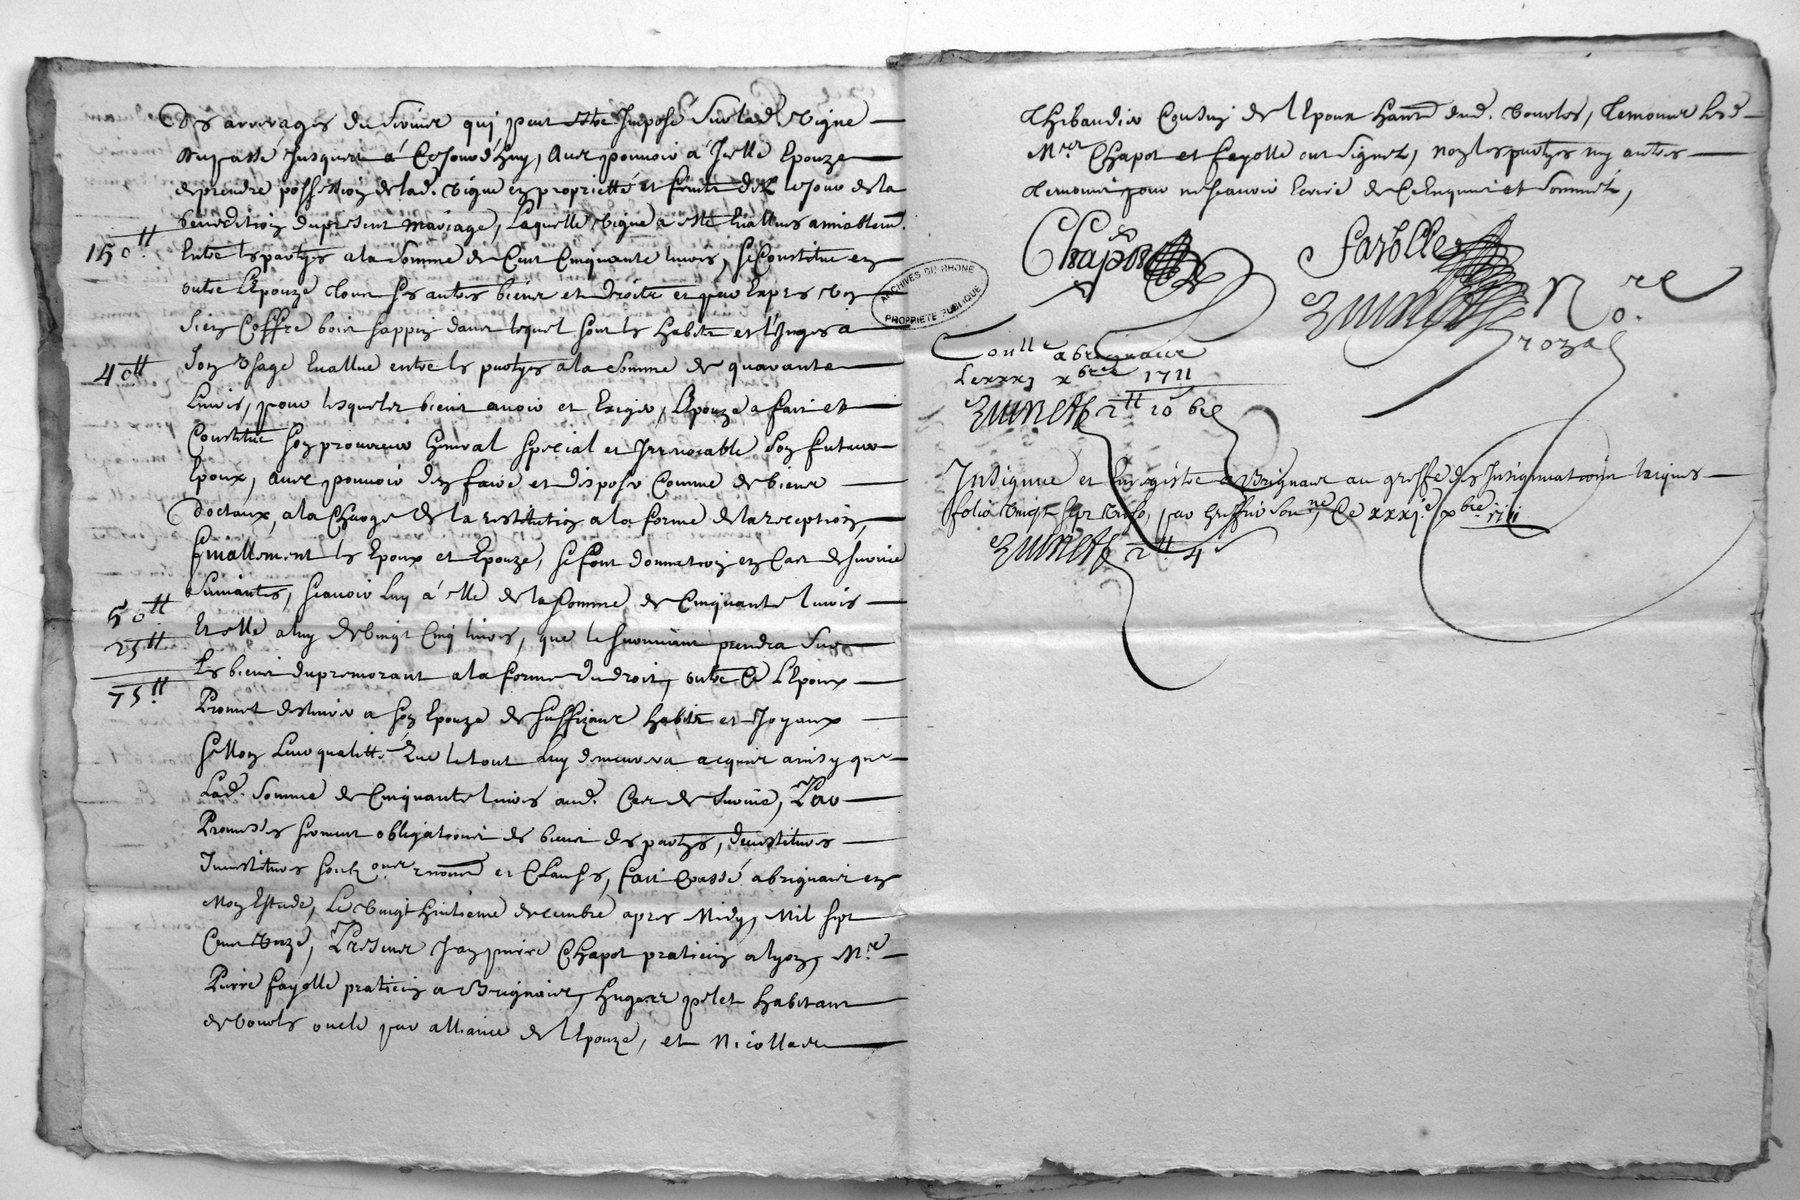 Des arrerages du servis qui peut estre Imposé Sur lad. vigne
du passé Jusques á Ce Jourd'huy, Avec pouvoir á Icelle Epouze
de prendre possession de lad. vigne en proprietté et fruits dez le Jour de la
benediction du present mariage, Laquelle vigne a esté Evalluée amiablem.
150.tt
Entre les partyes a la Somme de Cent Cinquante livres, se Constitue en
outre l'Epouze tous ses autres biens et droits et par Expres Un
sien Coffre bois sappin dans lequel sont les habits et linges a
40tt
son Usage Evallué entre les partyes a la Somme de quarante
Livres, pour lesquels biens avoir et Exiger, l'Epouze a fait et
Constitué son procureur General Special et Irrevocable son futur
Epoux, avec pouvoir d'en faire et disposer Comme de biens
doctaux, a la Charge de la restitution a la forme de la reception,
finallement les Epoux et Epouze, se font donnation en Cas de survie
suivante, sçavoir Luy á elle de la Somme de Cinquante livres
50.tt
Et elle a luy de vingt Cinq livres, que le survivant prendra sur
25tt
les biens du premorant a la forme du droit, outre Ce l'Epoux
75.tt
Promet d'estiver a son Epouze de suffizants habits et Joyaux
sellon leur qualitté. Que le tout luy demeurera acquis ainsy que
Lad. Somme de Cinquante livres aud. Cas de survie, Par
Promesses serment obligations de biens des partyes, devestitures
Investitures soubz et Clauses, fait et passé a brignais en
Mon Estude, Le vingt huitieme decembre apres Midy, Mil sept
Cent Unze, Presents Jean pierre Chapot praticien a lyon, Mre
Pierre fayolle praticien a Brignais, hugues pilet habitant
de vourles oncle par alliance de l'Epouze, et Nicollas
Thibaudier Cousin de l'Epoux hant. dud. vourles, temoins Lesd.
Mres Chapot et fayolle ont signé, non les partyes ny autres
temoins pour ne scavoir Ecrire de Ce Enquis et Sommés,
Chapot
Fayolle
Nre
ARCHIVES DU RHONE
PROPRIÉTÉ PUBLIQUE
Conlle a brignais
Le xxxj xbre 1711
2tt 10
Insignué et Enregistré a Brignais au greffe des Insignuations laiques
folio vingt sept verso, par Greffier Sousne, Ce xxxj.e xbre 1711
2tt 4